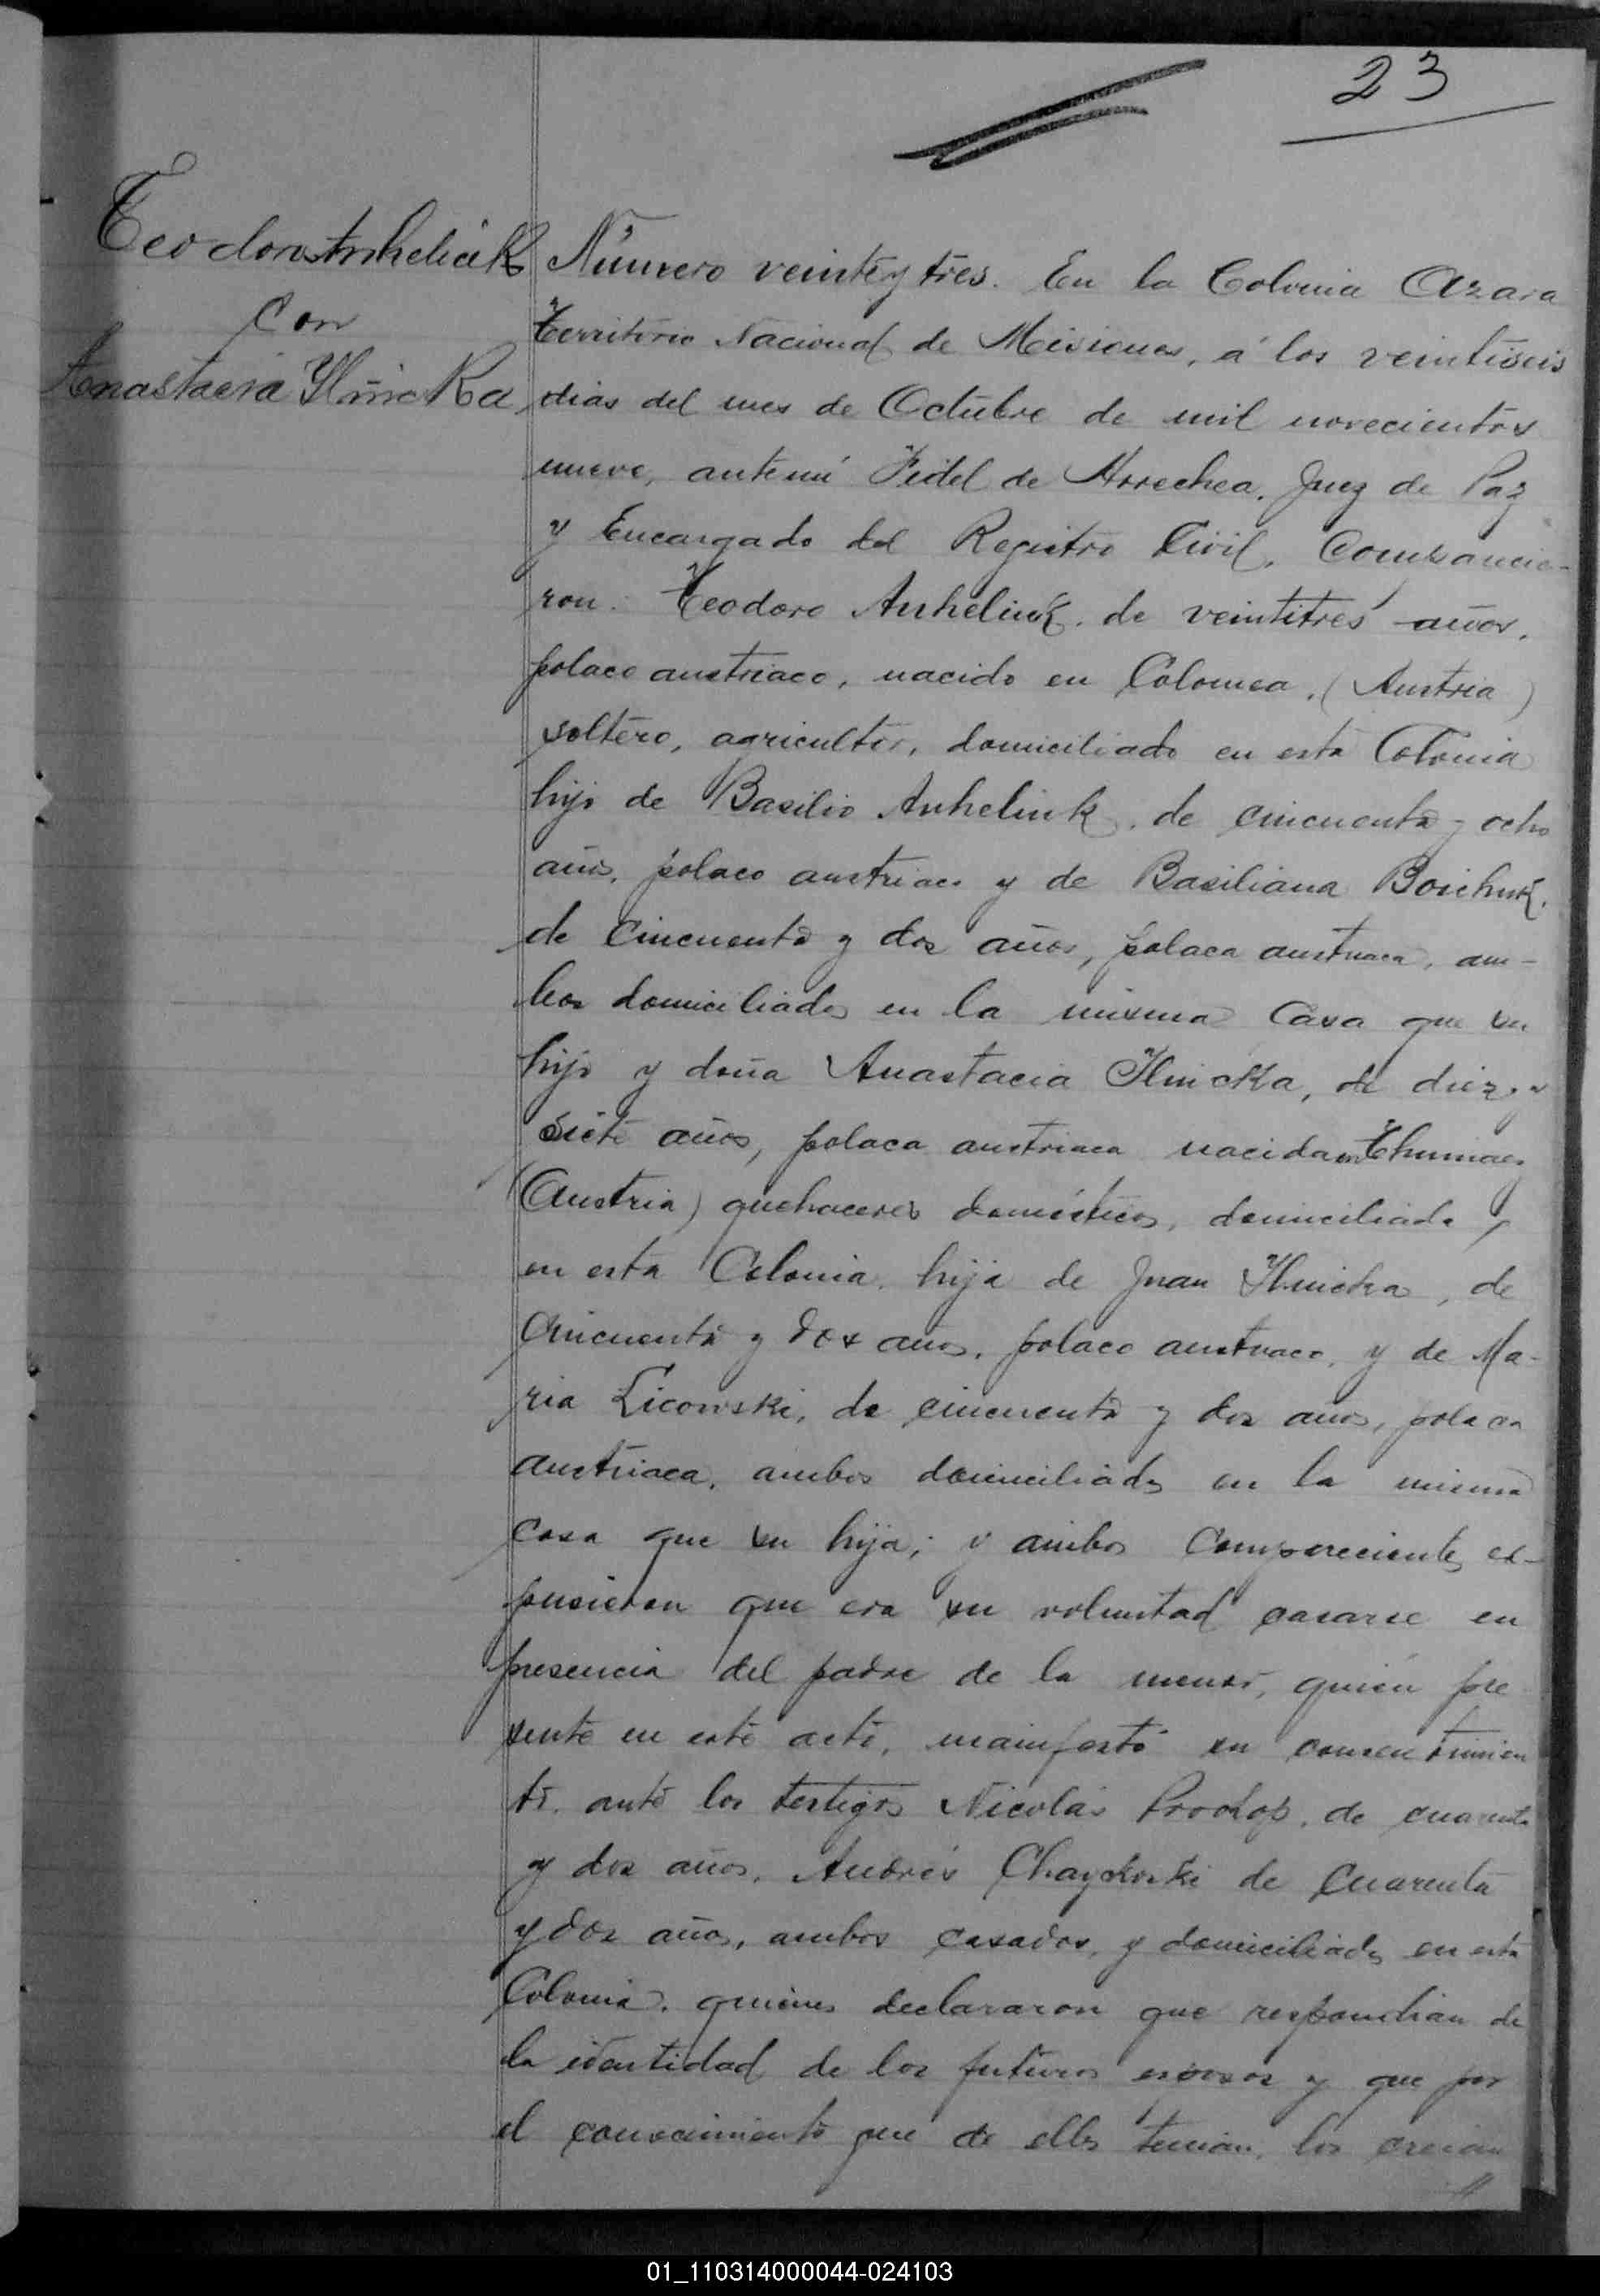 23
Teodoro Anheliuk
Con
Anastacia Ilnicka
Número veinte y tres. En la Colonia Azara
Territorio Nacional de Misiones, á los veintiseis
dias del mes de Octubre de mil novecientos
nueve, ante mi Fidel de Arrechea, Juez de Paz
y Encargado del Registro Civil, Comparecie-
ron: Teodoro Anheliuk, de veintitres años,
polaco austriaco, nacido en Colomea, (Austria)
soltero, agricultor, domiciliado en esta Colonia
hijo de Basilio Anheliuk, de cincuenta y ocho
años, polaco austriaco y de Basiliana Boichuk,
de cincuenta y dos años, polaca austriaca, am-
bos domiciliados en la misma Casa que su
hijo y doña Anastacia Ilnicka, de diez y
siete años, polaca austriaca nacida en
(Austria) quehaceres domésticos, domiciliada
en esta Colonia, hija de Juan Ilnicka, de
Cincuenta y dos años, polaco austriaco, y de Ma-
ria Licowski, de cincuenta y dos años, polaca
austriaca, ambos domiciliados en la misma
casa que su hija; y ambos Comparecientes ex-
pusieron que era su voluntad casarse en
presencia del padre de la menor, quién pre
sente en este acto, manifestó su consentimien
to, ante los testigos Nicolás Prockop, de cuarenta
y dos años, Andrés de Cuarenta
y dos años, ambos casados, y domiciliados en esta
Colonia, quienes declararon que respondian de
la identidad de los futuros esposos y que por
el conocimiento que de ellos tenian, los creian
01_110314000044-024103